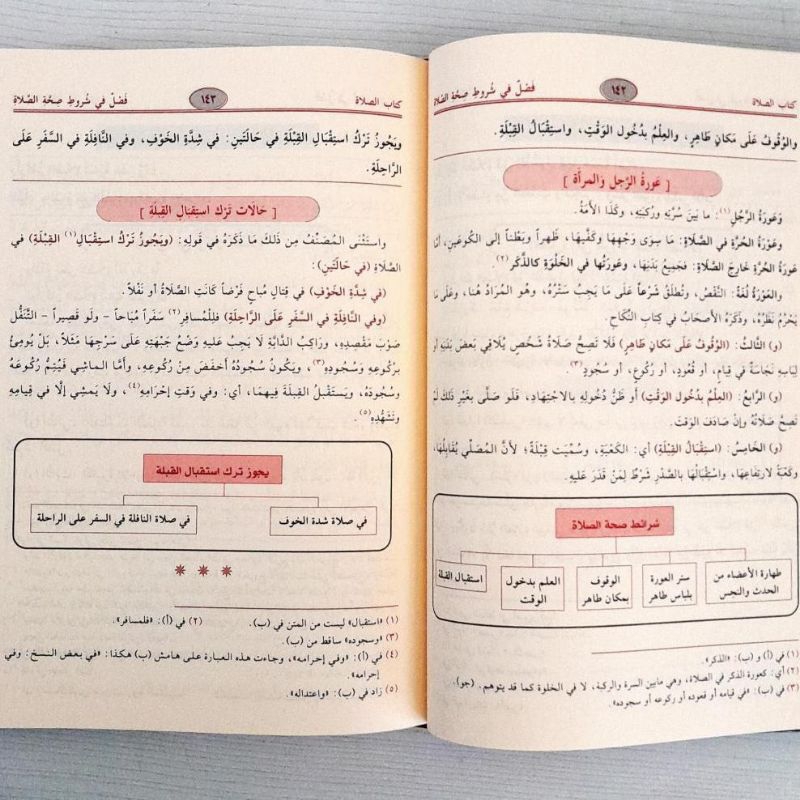 كتاب الصلاة
١٤٢
فَصْلٌ في شُروطِ صِحَّةِ الصَّلاة
والوُقُوفُ عَلَى مَكانٍ طَاهِرٍ، والعِلْمُ بِدُخُولِ الوَقْتِ، واستِقْبَالُ القِبْلَةِ.
[ عَورةُ الرَّجلِ وَالمرأة ]
وَعَورَةُ الرَّجُلِ(١): ما بَيْنَ سُرَّتِهِ ورُكبَتِهِ، وكَذَا الأَمَةُ.
وعَورَةُ الحُرَّةِ في الصَّلاةِ: مَا سِوَى وَجْهِهَا وكَفَّيهَا، ظَهراً وبَطْناً إلى الكُوعَينِ، أمَّا
عَورَةُ الحُرَّةِ خَارِجَ الصَّلاةِ: فجَمِيعُ بَدَنِهَا، وعَورَتُها في الخَلْوَةِ كالذَّكَرِ(٢).
والعَوْرَةُ لُغَةً: النَّقْصُ، وتُطلَقُ شَرعاً عَلى مَا يَجِبُ سَتْرُهُ، وهو المُرَادُ هُنا، وعَلَى مَا
يَحْرُمُ نَظَرُهُ، وذَكَرَهُ الأَصحَابُ في كِتابِ النِّكَاحِ.
(و) الثَّالِثُ: (الوُقُوفُ عَلى مَكانٍ طَاهِرٍ) فَلَا تَصِحُّ صَلاةُ شَخْصٍ يُلَاقِي بَعضُ بَدَنِهِ أو
لِبَاسِهِ نَجَاسَةً في قِيَامٍ، أو قُعُودٍ، أو رُكُوعٍ، أو سُجُودٍ(٣).
(و) الرَّابِعُ: (العِلْمُ بِدُخُولِ الوَقْتِ) أو ظَنُّ دُخُولِهِ بالاجْتِهَادِ، فَلَو صَلَّى بغَيْرِ ذَلكَ لَمْ
تَصِحَّ صَلَاتُهُ وإنْ صَادَفَ الوَقتَ.
(و) الخَامِسُ: (اسْتِقْبَالُ القِبْلَةِ) أي: الكَعْبَةِ، وسُمِّيَت قِبْلَةً؛ لأنَّ المُصَلِّي يُقَابِلُهَا،
وكَعْبَةً لارتِفَاعِهَا، واسْتِقْبَالُهَا بالصَّدْرِ شَرْطٌ لِمَنْ قَدَرَ عَلَيهِ.
شرائط صحة الصلاة
طهارة الأعضاء من الحدث والنجس
ستر العورة بلباس طاهر
الوقوف بمكان طاهر
العلم بدخول الوقت
استقبال القبلة
(١) في (أ) و (ب): «الذكر».
(٢) أي: كعورة الذكر في الصلاة، وهي مابين السرة والركبة، لا في الخلوة كما قد يتوهم. (جو).
(٣) في (ب): «في قيامه أو قعوده أو ركوعه أو سجوده».
١٤٣
فَصْلٌ في شُروطِ صِحَّةِ الصَّلاة
ويَجُوزُ تَرْكُ استِقْبَالِ القِبْلَةِ في حَالَتَينِ: في شِدَّةِ الخَوْفِ، وفي النَّافِلَةِ في السَّفَرِ عَلَى
الرَّاحِلَةِ.
[ حَالَات تَرْك استِقبَالِ القِبلَةِ ]
واستَثْنَى المُصَنِّفُ مِن ذَلكَ مَا ذَكَرَهُ في قَولِهِ: (ويَجُوزُ تَرْكُ استِقْبَالِ(١) القِبْلَةِ) في
الصَّلاةِ (في حَالَتَينِ):
(في شِدَّةِ الخَوْفِ) في قِتالٍ مُباحٍ فَرْضاً كانَتِ الصَّلَاةُ أو نَفْلاً.
(وفي النَّافِلَةِ في السَّفَرِ عَلَى الرَّاحِلَةِ) فلِلْمُسافِرِ(٢) سَفَراً مُبَاحاً – ولَو قَصِيراً – التَّنَفُّلُ
صَوْبَ مَقْصِدِهِ، ورَاكِبُ الدَّابَّةِ لَا يَجِبُ عَلَيهِ وَضْعُ جَبْهَتِهِ عَلَى سَرْجِهَا مَثَلاً، بَلْ يُومِئُ
بِرُكُوعِهِ وَسُجُودِهِ(٣)، ويَكُونُ سُجُودُهُ أخفَضَ مِنْ رُكُوعِهِ، وأمَّا الماشِي فَيُتِمُّ رُكُوعَهُ
وسُجُودَهُ، ويَستَقْبِلُ القِبلَةَ فِيهِمَا، أي: وفي وَقتِ إحْرَامِهِ(٤)، ولَا يَمشِي إلَّا في قِيامِهِ
وتَشَهُّدِهِ(٥)
يجوز ترك استقبال القبلة
في صلاة شدة الخوف
في صلاة النافلة في السفر على الراحلة
(١) «استقبال» ليست من المتن في (ب). (٢) في (أ): «فلمسافر».
(٣) «وسجوده» ساقط من (ب).
(٤) في (أ): «وفي إحرامه»، وجاءت هذه العبارة على هامش (ب) هكذا: «في بعض النسخ: وفي
إحرامه».
(٥) زاد في (ب): «واعتداله».